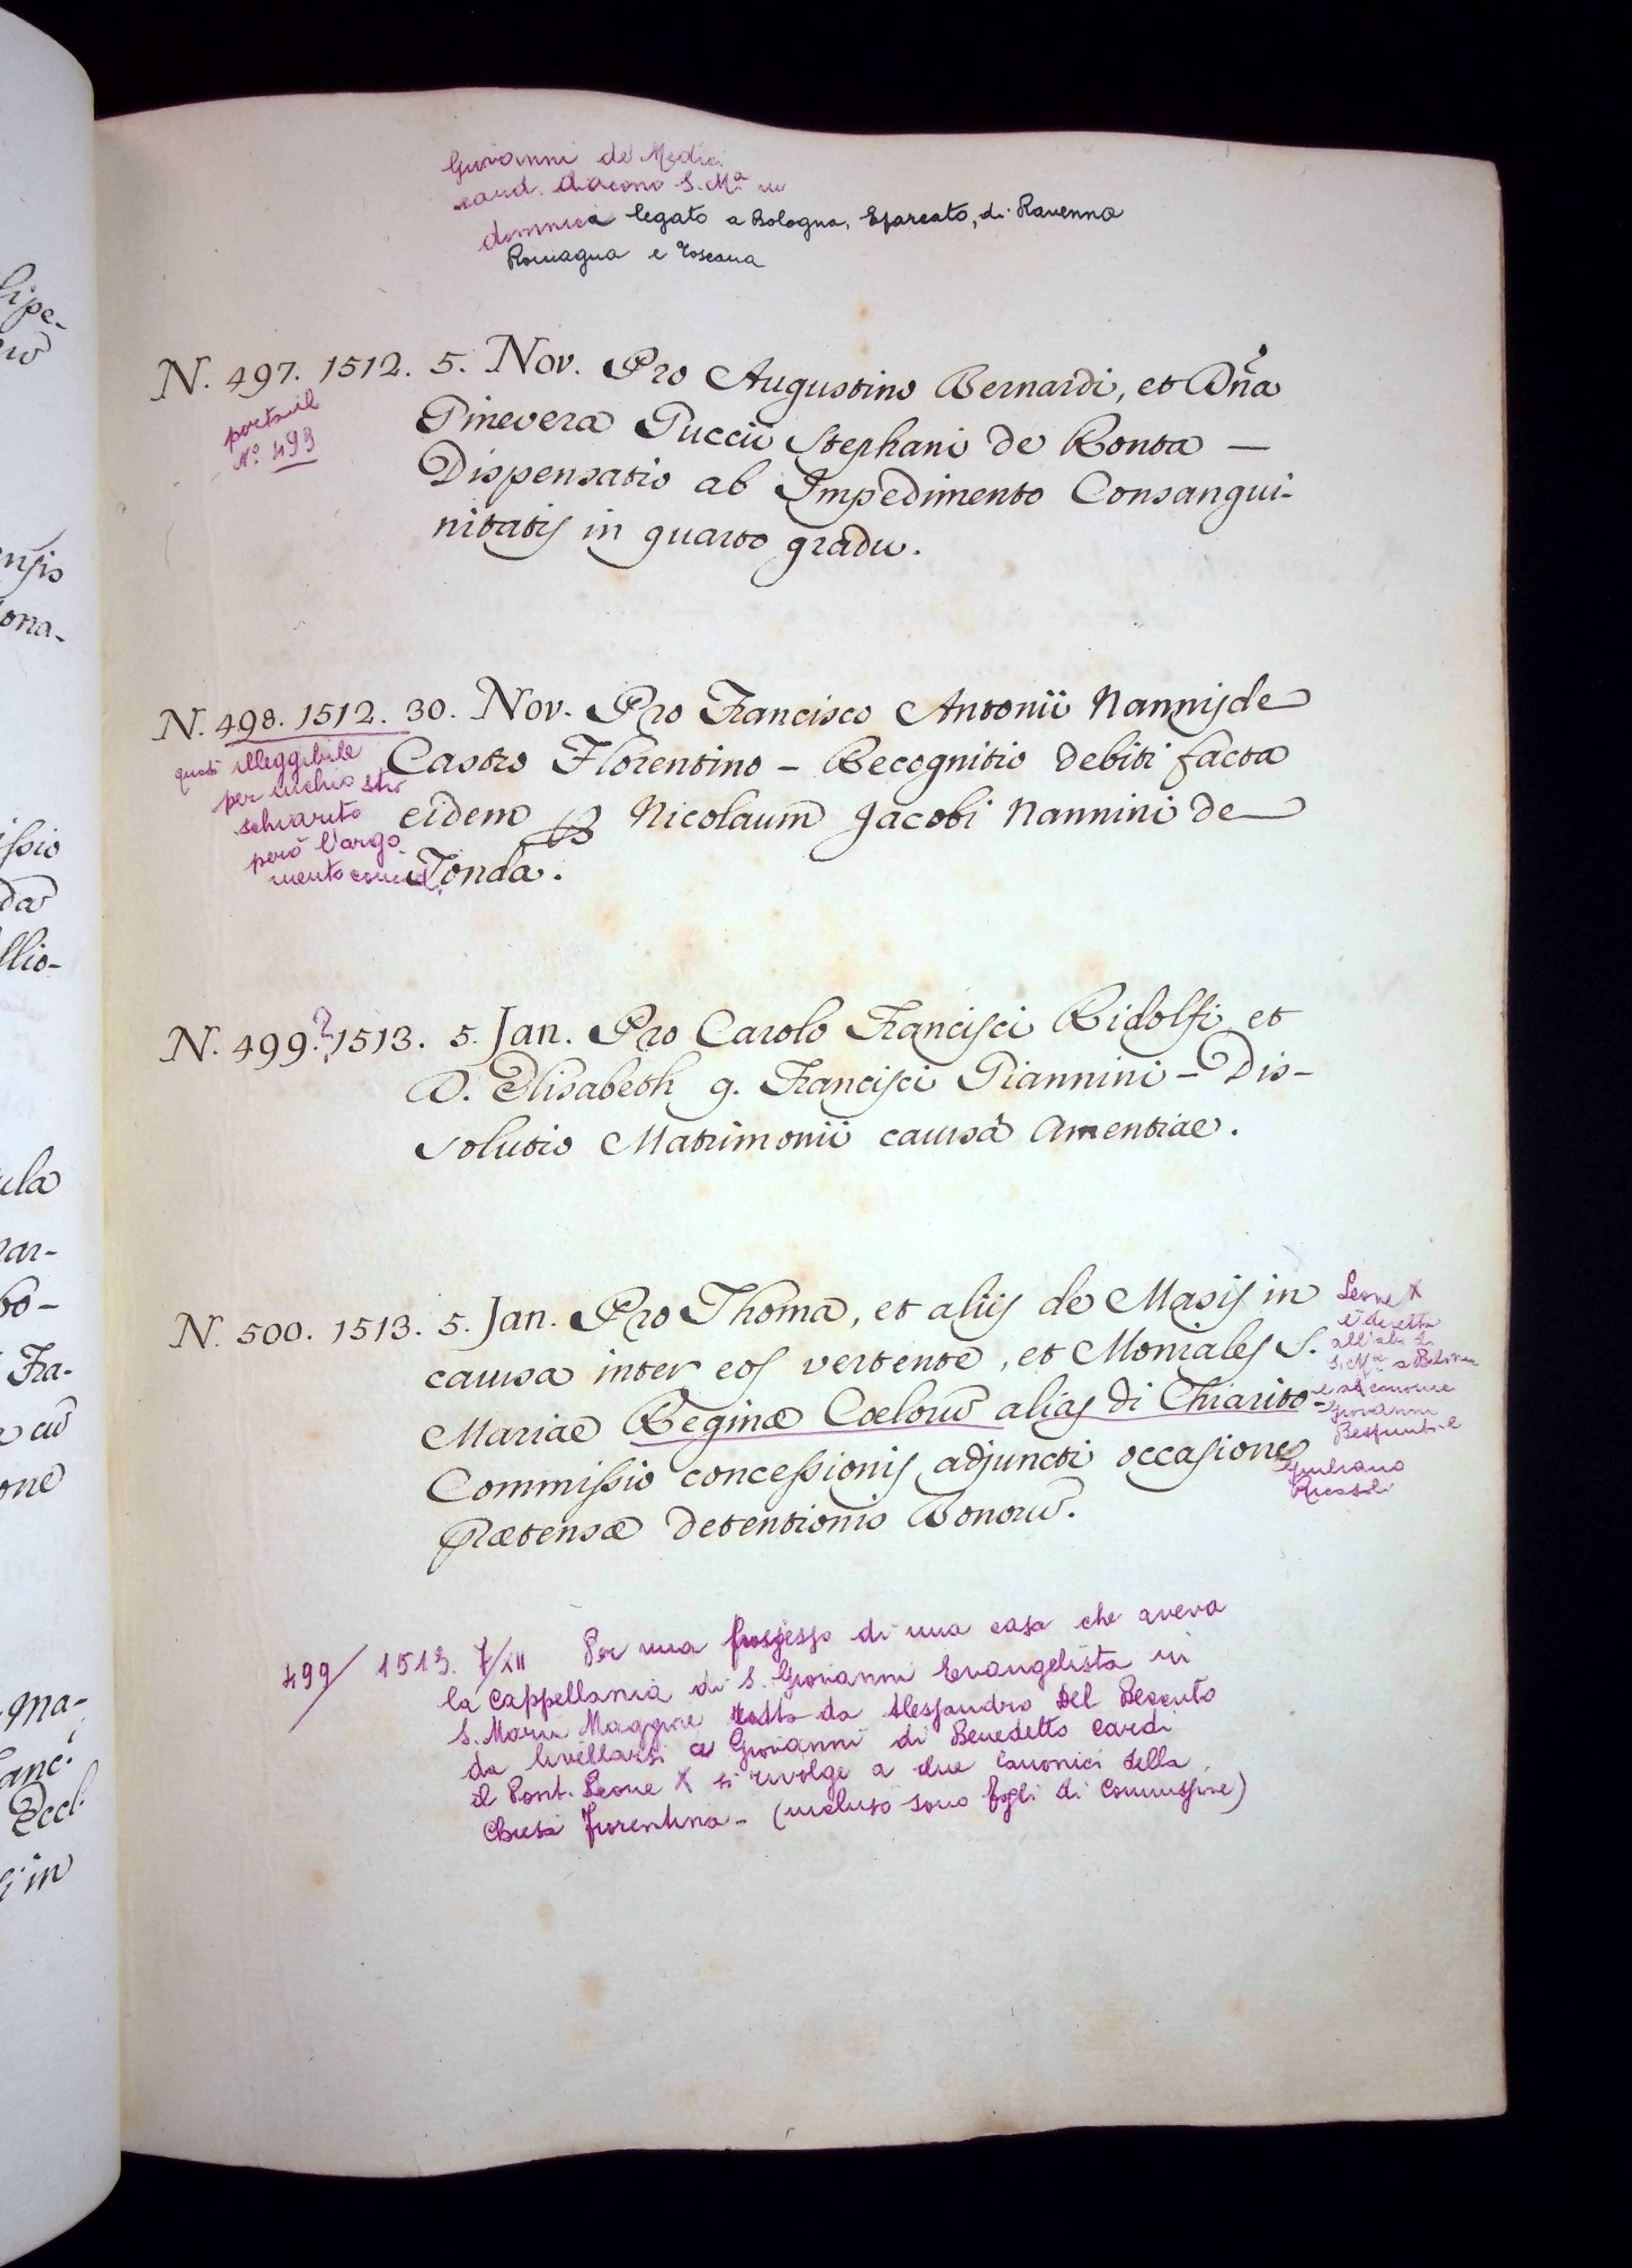 Giovanni de' Medici
card. diacono S. Mª in
domnica legato a Bologna, Esarcato, di Ravenna
Romagna e Toscana
N. 497. 1512. 5. Nov. Pro Augustino Bernardi, et Dña
porta il
Nº 493
Ginevera Puccii Stephani de Ronta —
Dispensatio ab Impedimento Consangui-
nitatis in quarto gradu.
N. 498. 1512. 30. Nov. Pro Francisco Antonii Nannis de
quasi illeggibile
per inchiostro
schiarito
però l'argo
mento
Castro Florentino – Recognitio debiti facta
eidem ꝑ Nicolaum Jacobi Nannini de
Tonda.
N. 499.? 1513. 5. Jan. Pro Carolo Francisci Ridolfi et
D. Elisabeth q. Francisci Giannini – Dis-
solutio Matrimonii causa Amentiae.
N. 500. 1513. 5. Jan. Pro Thoma, et aliis de Masis in
causa inter eos vertente, et Moniales S.
Mariae Reginæ Coelorū alias di Chiarito –
Commissio concessionis adjuncti occasione
prætensæ detentionis Bonorū.
Leone X
è diretta
all'ab.
S. Mª
e al canonico
Giovanni
Giuliano
Ricasoli
499/ 1513. 7/XII Per una di una casa che aveva
la cappellania di S. Giovanni Evangelista in
S. Maria Maggiore da Alessandro Del Beccuto
da livellarsi a Giovanni di Benedetto Cardi
il Pont. Leone X si rivolge a due Canonici della
Chiesa fiorentina – (incluso sono fogli di Commissione)